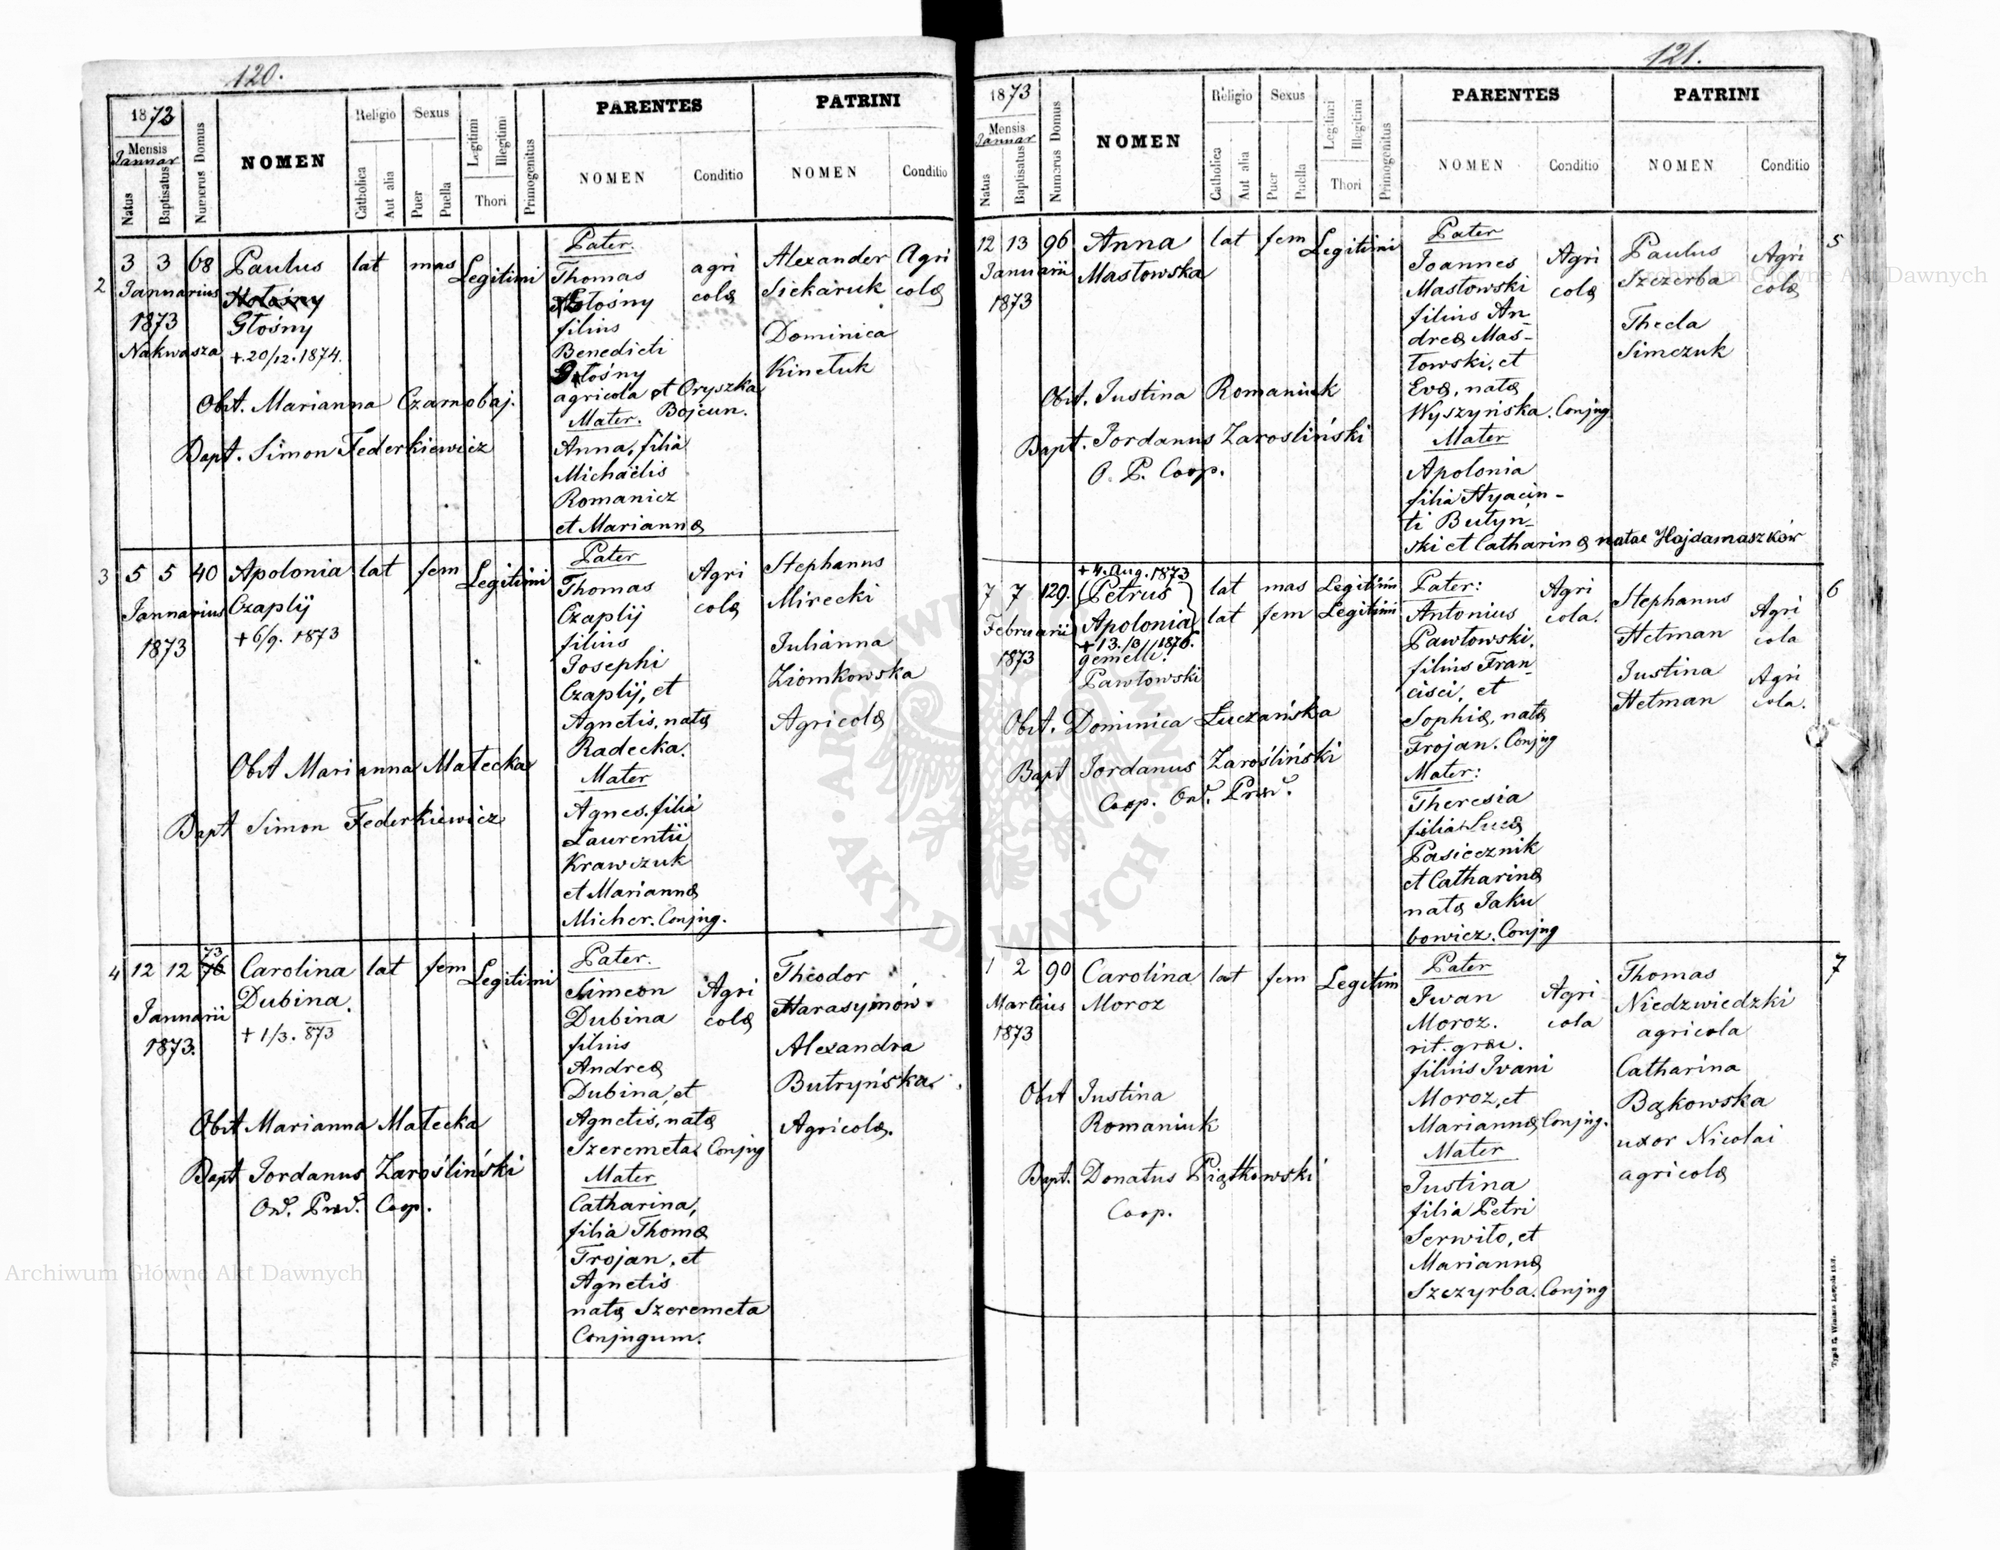 120.
1873
Mensis
Januar
Natus
Baptisatus
Numerus Domus
NOMEN
Religio
Catholica
Aut alia
Sexus
Puer
Puella
Legitimi
Illegitimi
Thori
Primogenitus
PARENTES
NOMEN
Conditio
PATRINI
NOMEN
Conditio
2
3 3 68 Paulus lat mas Legitimi
Januarius
1873 Głośny
Nakwasza + 20/12. 1874.
Obst. Marianna Czarnobaj.
Bapt. Simon Federkiewicz
Pater.
Thomas agri
Głośny colæ
filius
Benedicti
Głośny
agricola et Oryszka
Mater. Bojcun.
Anna, filia
Michaëlis
Romanicz
et Mariannæ
Alexander Agri
Siekaruk colæ
Dominica
Kinetuk
3
5 5 40 Apolonia lat fem Legitimi
Januarius Czaplij
1873 + 6/9. 1873
Obst Marianna Małecka
Bapt Simon Federkiewicz
Pater
Thomas Agri
Czaplij colæ
filius
Josephi
Czaplij, et
Agnetis, natæ
Radecka.
Mater
Agnes, filia
Laurentii
Krawczuk
et Mariannæ
Micher. Conjug.
Stephanus
Mirecki
Julianna
Ziomkowska
Agricolæ
4
12 12 76 73 Carolina lat fem Legitimi
Januarii Dubina.
1873. + 1/3. 873
Obst Marianna Małecka
Bapt Jordanus Zarośliński
Ord. Præd. Coop.
Pater.
Simeon Agri
Dubina colæ
filius
Andreæ
Dubina, et
Agnetis, natæ
Szeremeta Conjug
Mater
Catharina,
filia Thomæ
Trojan, et
Agnetis
natæ Szeremeta
Conjugum.
Theodor
Harasymów.
Alexandra
Butryńska.
Agricolæ.
121.
1873
Mensis
Januar
Natus
Baptisatus
Numerus Domus
NOMEN
Religio
Catholica
Aut alia
Sexus
Puer
Puella
Legitimi
Illegitimi
Thori
Primogenitus
PARENTES
NOMEN
Conditio
PATRINI
NOMEN
Conditio
5
12 13 96 Anna lat fem Legitimi
Januarii Masłowska
1873
Obst. Justina Romaniuk
Bapt. Jordanus Zarosliński
O. P. Coop.
Pater
Joannes Agri
Masłowski colæ
filius An
dreæ Mas-
łowski, et
Evæ, natæ
Wyszyńska. Conjug
Mater
Apolonia
filia Hyacin-
ti Butyń-
ski et Catharinæ natae Hajdamaszków
Paulus Agri
Szczerba colæ
Thecla
Simczuk
6
+ 4. Aug. 1873
7 7 129. Petrus lat mas Legitimi
Februarii Apolonia lat fem Legitimi
1873 gemelli.
Pawłowski
Obst. Dominica Łuczańska
Bapt Jordanus Zarośliński
Coop. Ord. Præd.
Pater: Agri
Antonius cola.
Pawłowski,
filius Fran-
cisci, et
Sophiæ, natæ
Trojan. Conjug
Mater:
Theresia
filia Lucæ
Pasiecznik
et Catharinæ
natæ Jaku
bowicz. Conjug
Stephanus Agri
Hetman cola
Justina Agri
Hetman cola.
7
1 2 90 Carolina lat fem Legitim
Martius Moroz
1873
Obst Justina
Romaniuk
Bapt. Donatus Piątkowski
Coop.
Pater
Iwan Agri
Moroz. cola
rit. græc.
filius Ivani
Moroz, et
Mariannæ Conjug.
Mater
Justina
filia Petri
Serwiło, et
Mariannæ
Szczyrba. Conjug
Thomas
Niedzwiedzki
agricola
Catharina
Bąkowska
uxor Nicolai
agricolæ
Archiwum Główne Akt Dawnych
Archiwum Główne Akt Dawnych
ARCHIWUM GŁÓWNE AKT DAWNYCH